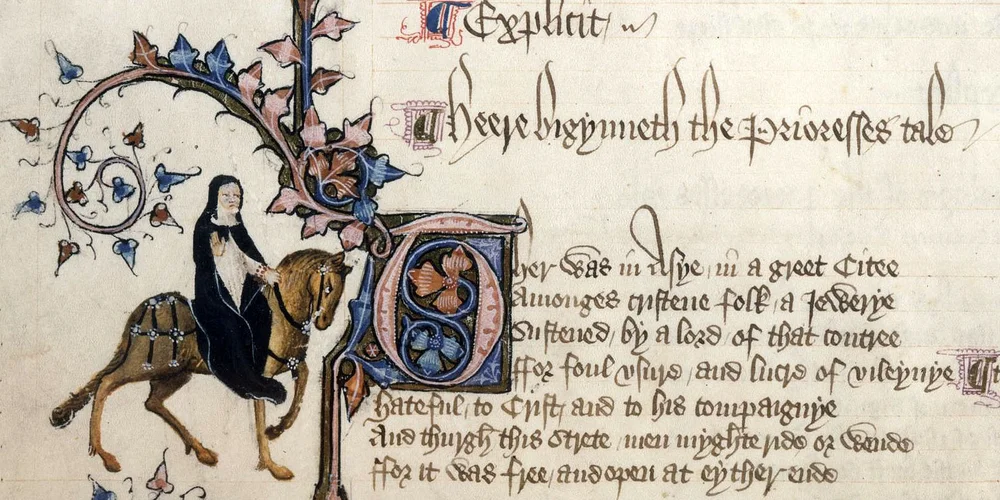 ¶ Explicit
¶ Heere bigynneth the Prioresses tale
Ther was in Asye / in a greet Citee
Amonges cristene folk / a Jewerye
Sustened / by a lord / of that contree
ffor foul vsure / and lucre of vileynye
hateful / to Crist / and to his compaignye
And thurgh this Strete / men myghte ride or wende
ffor it was free / and open at eyther ende